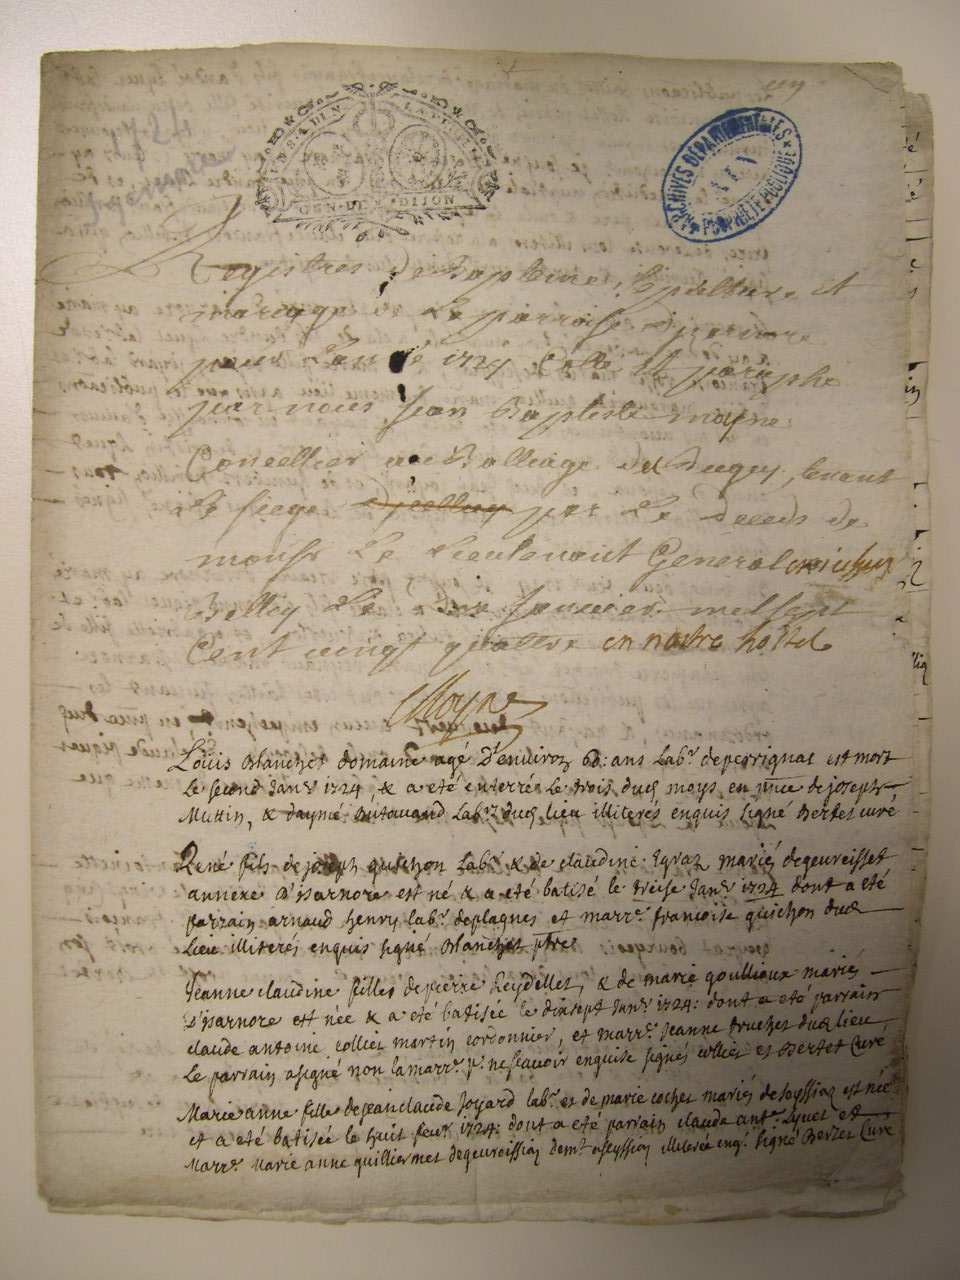 GEN. DE DIJON
ARCHIVES DEPARTEMENTALES
PROPRIETE PUBLIQUE
Registres De Baptême, et
mariage de La parroisse
pour L'année 1724 Cotté Et paraphé
par nous Jean Baptiste moyne
Conseillier au Balliage de Bugey, tenant
Le siege par Le deceds de
monsr Le Lieutenant General
Belley Le Janvier mil sept
Cent vingt quattre en nostre hostel
Moyne
Loüis Blanchet domaine agé D'environ 60: ans Labr. de perrignat est mort
Le second Janr. 1724, & a été enterré Le trois dud moys en pñce de joseph
Muttin, & Labr. dud Lieu illiterés enquis signé Bertet curé
René fils de joseph guichon Labr. & de claudine Egraz mariés de geureisset
annexe d'isarnore est né & a été batisé le treise Janr. 1724 dont a été
parrain arnaud henry labr. de plagnes et marre. francoise guichon dud
Lieu illiterés enquis signé Blanchet ptre
Jeanne claudine filles de pierre Reydellet, & de marie goullioux mariés
D'isarnore est née & a été batisée le dixsept Janr. 1724: dont a été parrain
claude antoine collier martin cordonnier, et marre. Jeanne truchet dud lieu,
Le parrain a signé non la marre. pr. ne scavoir enquise signés collier et Bertet Curé
Marie anne fille de jean claude Joyard labr. et de marie cochet mariés de soyssion est née
et a été batisée le huit feur. 1724: dont a été parrain claude ante. et
Marre. Marie anne quilliermet de geureission demt. a seyssion illiterée enqs. signé Bertet Curé